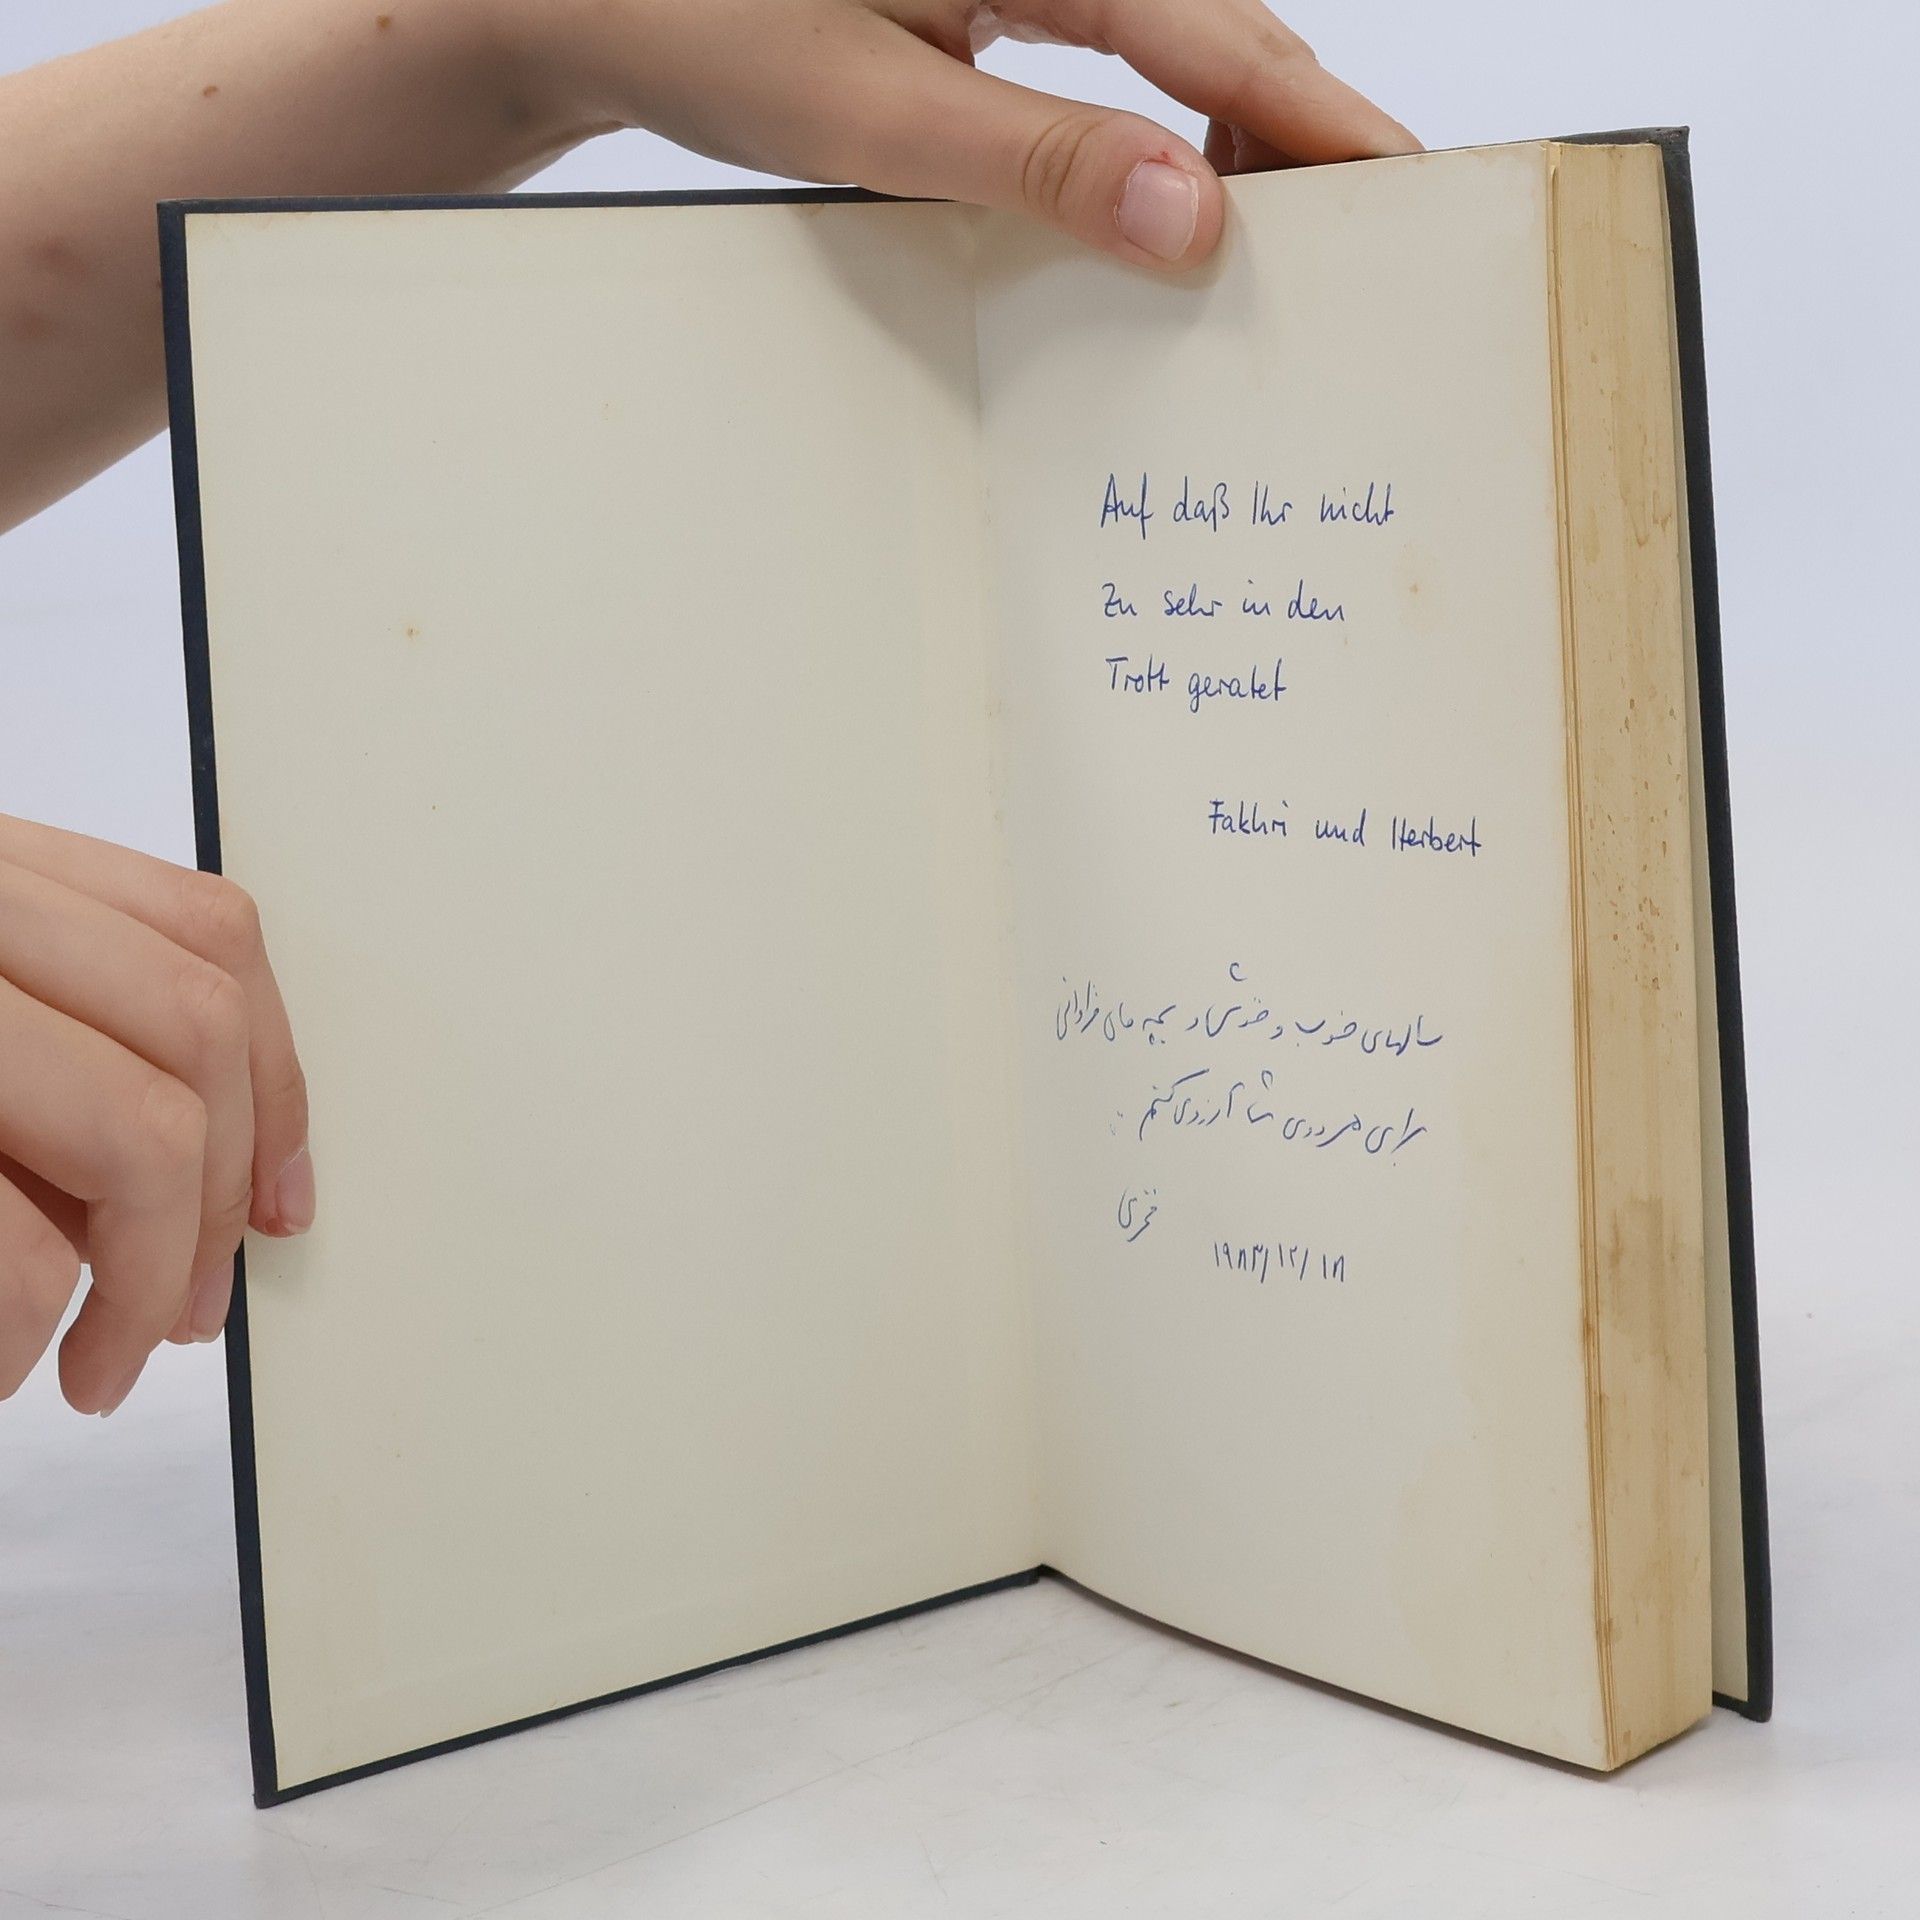 Auf daß Ihr nicht
zu sehr in den
Trott geratet
Fakhri und Herbert
سالهای خوب و خوش و بچه های فراوانی
برای هر دوی شما آرزو می کنم
فخری
۱۹۸۳/۱۲/۱۸